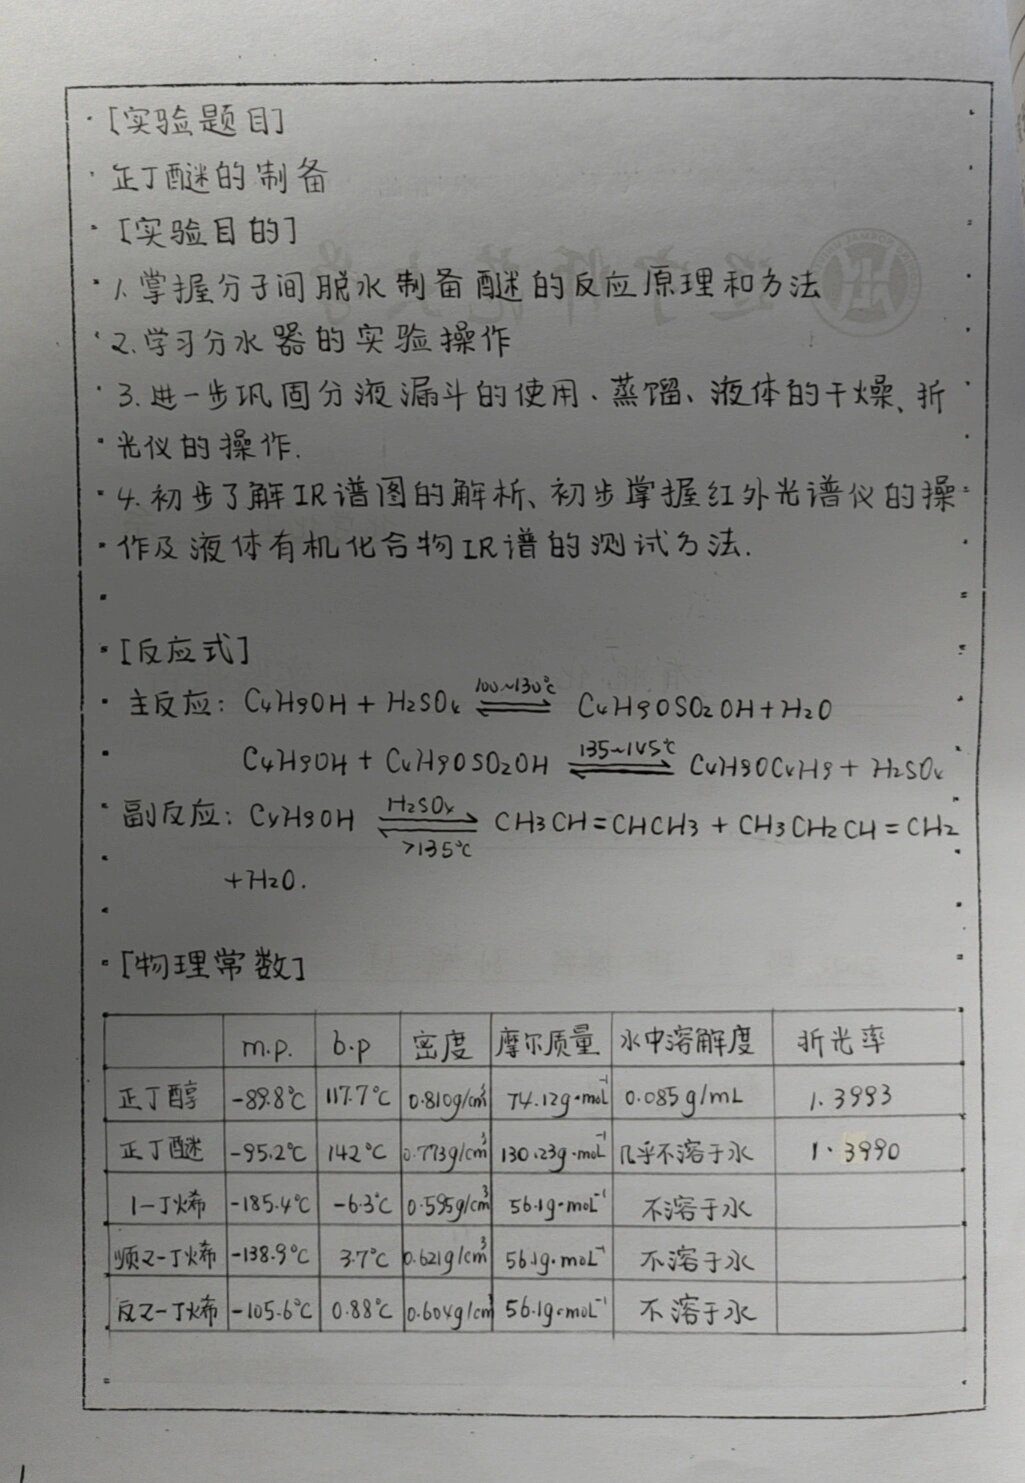 [实验题目]
正丁醚的制备
[实验目的]
1.掌握分子间脱水制备醚的反应原理和方法
2.学习分水器的实验操作
3.进一步巩固分液漏斗的使用、蒸馏、液体的干燥、折
光仪的操作.
4.初步了解IR谱图的解析、初步掌握红外光谱仪的操
作及液体有机化合物IR谱的测试方法.
[反应式]
主反应: C4H9OH + H2SO4 ⇌ 100~130℃ C4H9OSO2OH + H2O
C4H9OH + C4H9OSO2OH ⇌ 135~145℃ C4H9OC4H9 + H2SO4
副反应: C4H9OH ⇌ H2SO4 >135℃ CH3CH=CHCH3 + CH3CH2CH=CH2
+H2O.
[物理常数]
m.p. b.p 密度 摩尔质量 水中溶解度 折光率
正丁醇 -89.8℃ 117.7℃ 0.810g/cm³ 74.12g·moL⁻¹ 0.085g/mL 1.3993
正丁醚 -95.2℃ 142℃ 0.773g/cm³ 130.23g·moL⁻¹ 几乎不溶于水 1.3990
1-丁烯 -185.4℃ -6.3℃ 0.595g/cm³ 56.1g·moL⁻¹ 不溶于水
顺2-丁烯 -138.9℃ 3.7℃ 0.621g/cm³ 56.1g·moL⁻¹ 不溶于水
反2-丁烯 -105.6℃ 0.88℃ 0.604g/cm³ 56.1g·moL⁻¹ 不溶于水